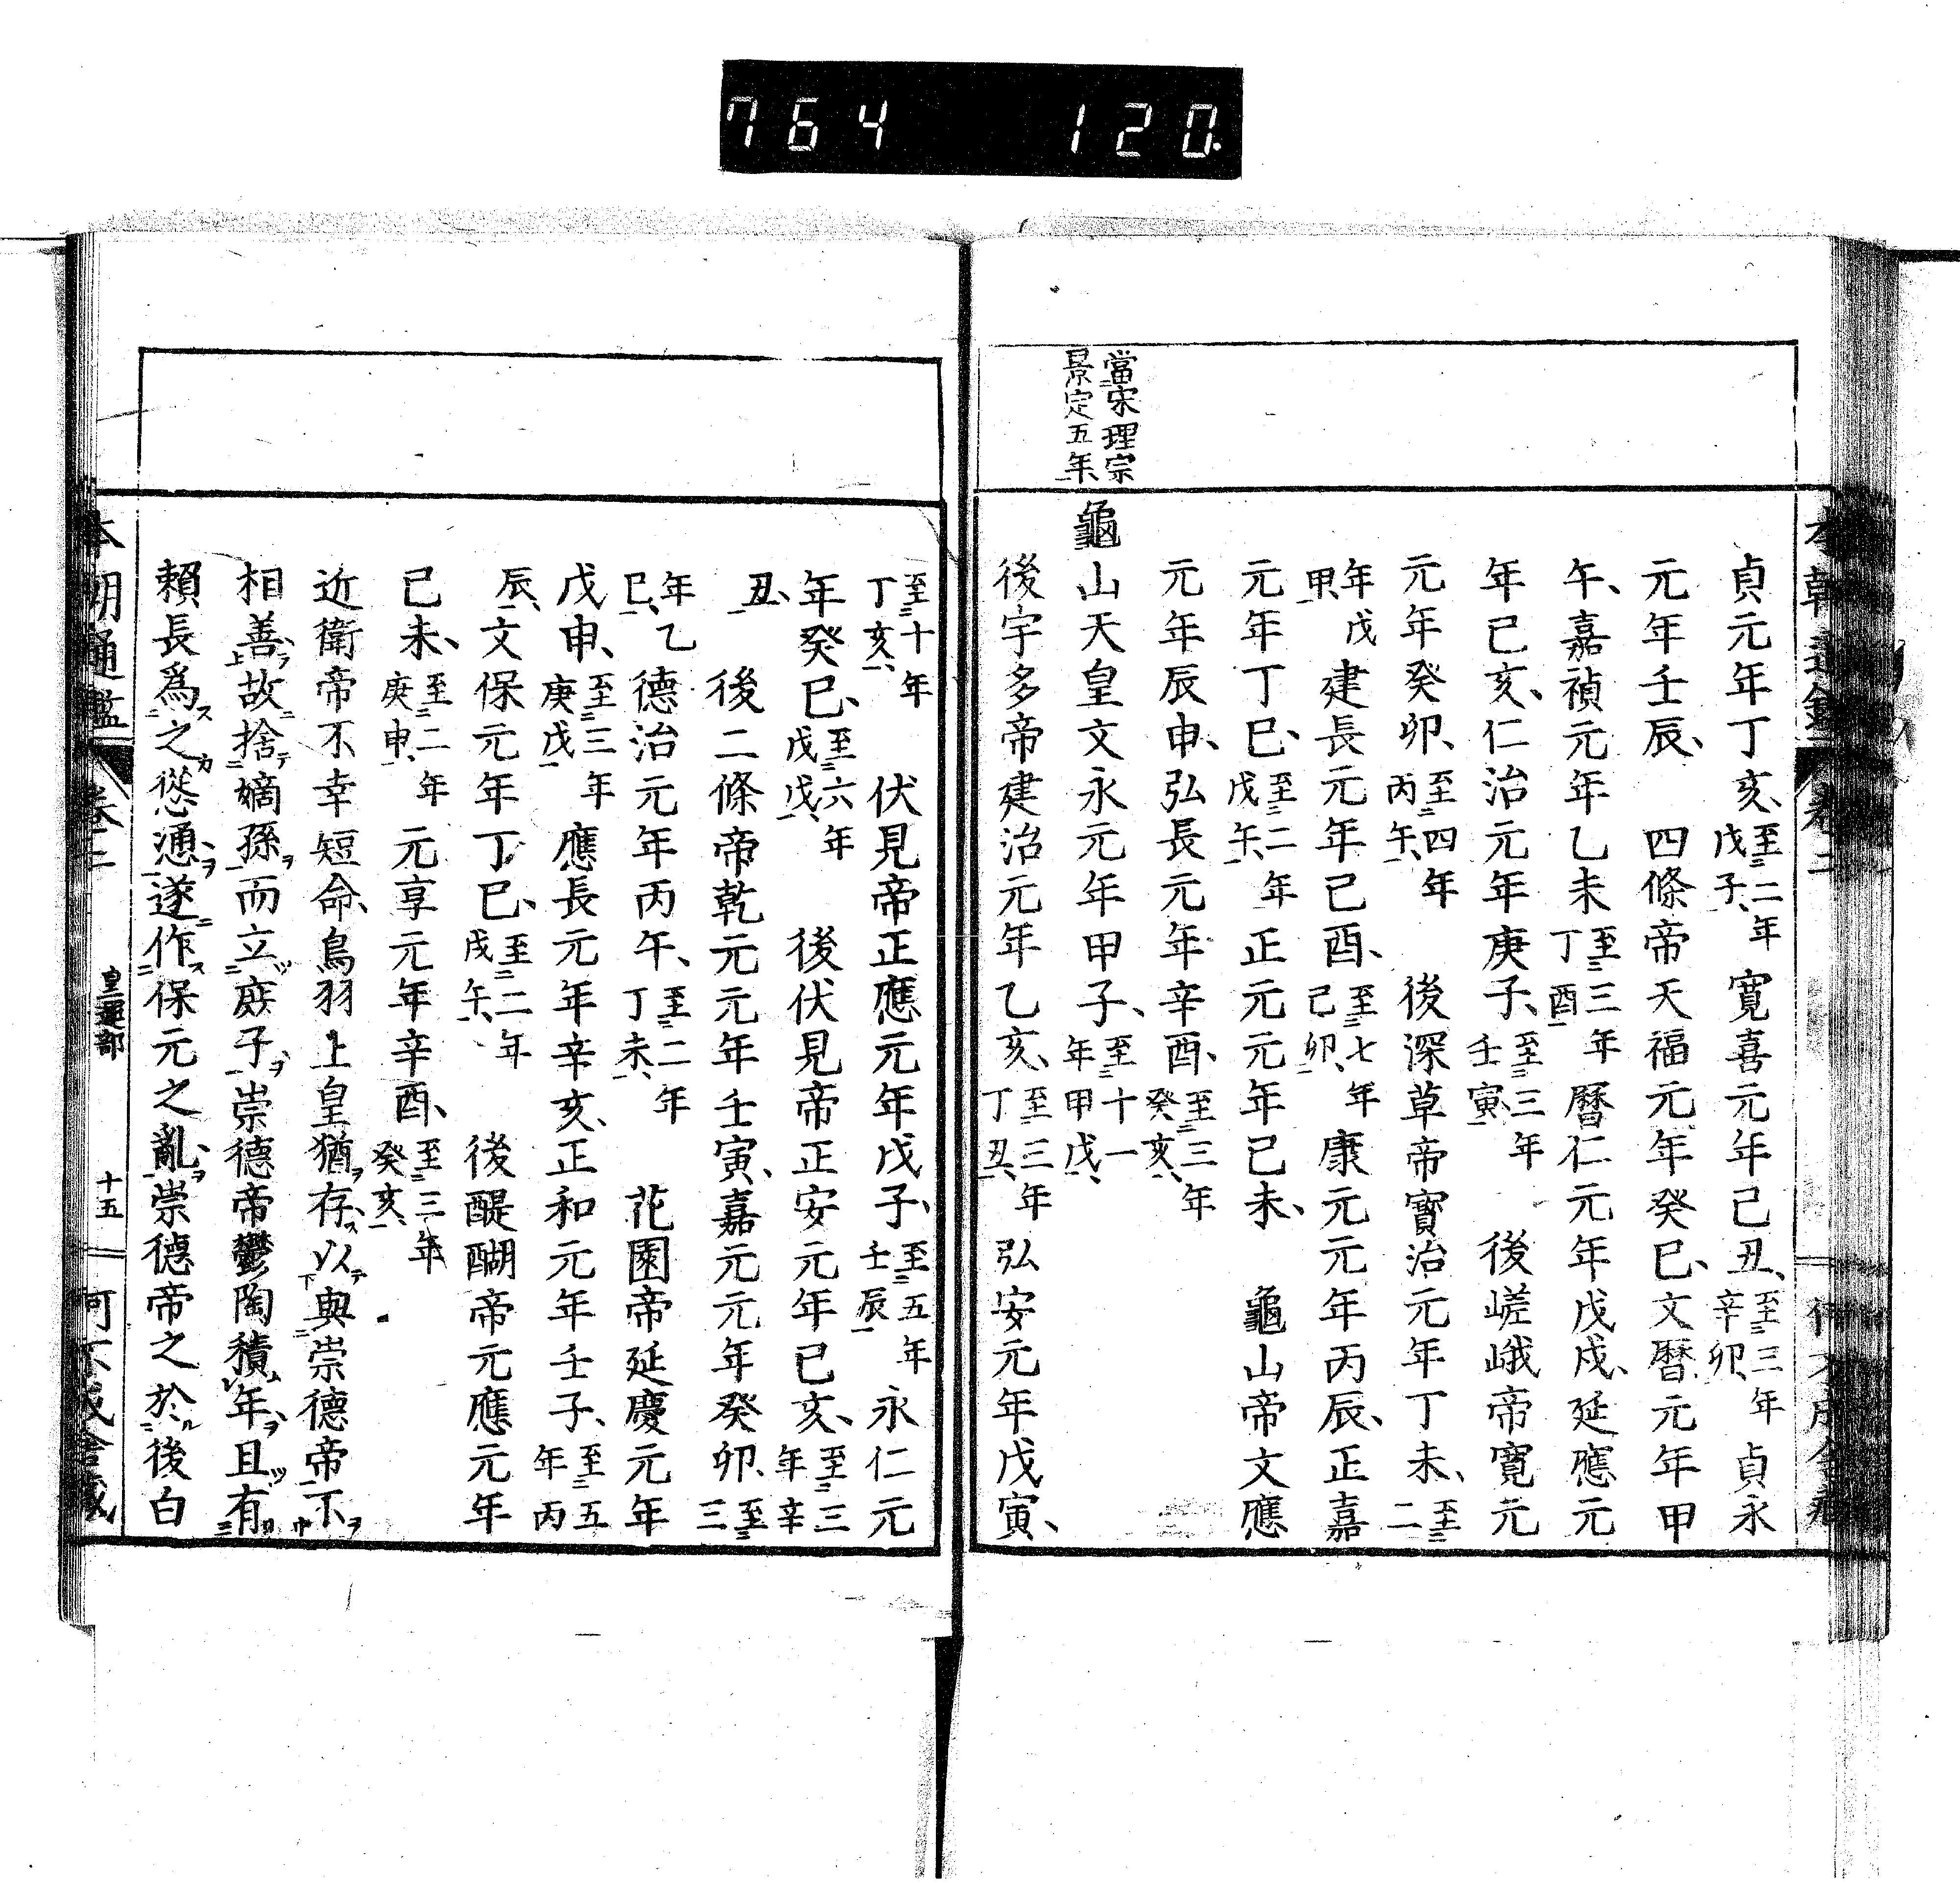 764 120.
當宋理宗
景定五年、
貞元年丁亥、至二年戊子、寛喜元年己丑、至三年辛卯、貞永
元年壬辰、四條帝天福元年癸巳、文暦元年甲
午、嘉禎元年乙未至三年丁酉暦仁元年戊戌、延應元
年己亥、仁治元年庚子、至三年壬寅後嵯峨帝寛元
元年癸卯、至四年丙午、後深草帝寳治元年丁未、至二
年戊申、建長元年己酉、至七年己卯、康元元年丙辰、正嘉
元年丁巳、至二年戊午、正元元年己未、龜山帝文應
元年辰申、弘長元年辛酉、至三年癸亥、
龜山天皇文永元年甲子、至十一年甲戊、
後宇多帝建治元年乙亥、至三年丁丑、弘安元年戊寅、
至十年丁亥、伏見帝正應元年戊子、至五年壬辰永仁元
年癸巳、至六年戊戊、後伏見帝正安元年己亥、至三年辛
丑、後二條帝乾元元年壬寅、嘉元元年癸卯、至三
年乙巳、德治元年丙午、至二年丁未、花園帝延慶元年
戊申、至三年庚戊應長元年辛亥、正和元年壬子、至五年丙
辰、文保元年丁巳、至二年戊午、後醍醐帝元應元年
己未、至二年庚申、元享元年辛酉、至三年癸亥、
近衛帝不幸短命、鳥羽上皇猶存、以與崇德帝不
相善故捨嫡孫而立庻子崇德帝鬱陶積年且有
賴長爲之慫慂遂作保元之亂崇德帝之於後白
本朝通鑑 卷二 皇運部 十五